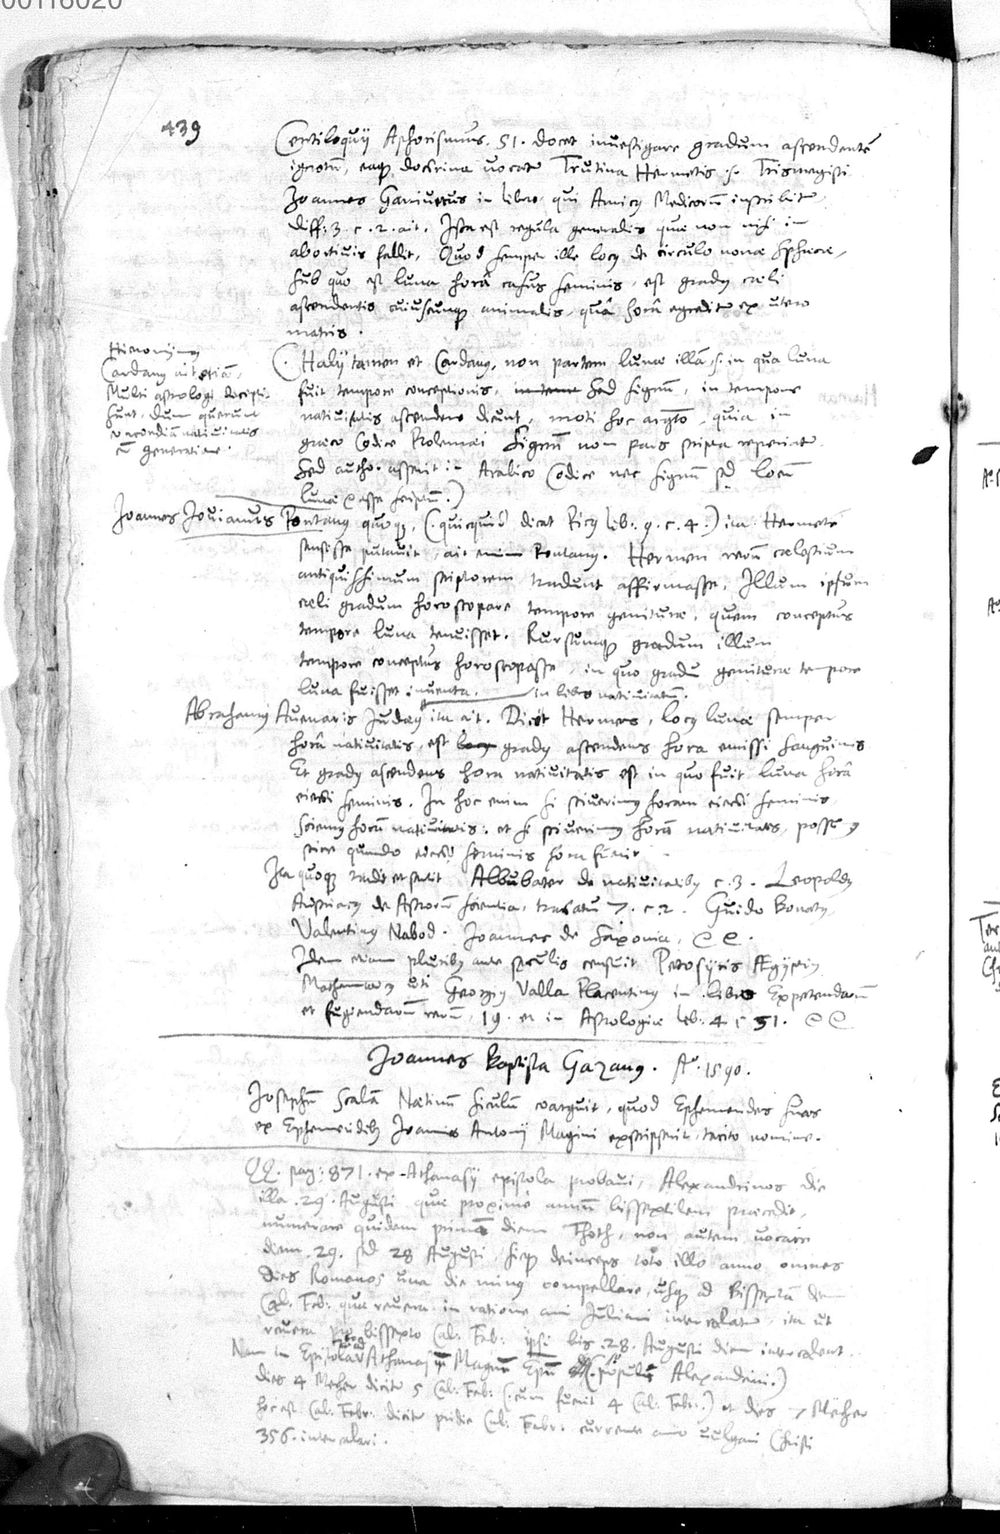 00116020
439
Centiloquij Aphorismus. 51. docet inuestigare gradum ascendentē
ignotū, eaq; doctrina uocatr Trutina Hermetis .s. Trismegisti
Joannes Ganiuetus in libro qui Amicꝰ Medicorū inscribitr
diff: 3. c. 2. ait. Ista est regula generalis quæ non nisi in
abortiuis fallit, Quod semper ille locꝰ de circulo nonæ Sphæræ,
sub quo est luna horâ casus seminis, est gradꝰ cæli
ascendentis cuiuscunq; animalis, quâ horâ egreditr ex utero
matris.
Hieronijmꝰ
Cardanꝰ ait etiā,
Multi astrologi decipi-
untr, dum querunt
concordiā natiuitatis
cū generatione.
(. Halij tamen et Cardanꝰ, non partem lunæ illā .s. in qua luna
fuit tempore conceptionis, sed signū, in tempore
natiuitatis ascendere dicunt, moti hoc argto, quia in
græco Codice Ptolemæi Signū non pars scripta reperitr.
Sed autho. asserit in Arabico Codice nec signū sꝫ locū
lunæ esse scriptū.)
Joannes Jouianus Pontanꝰ quoq;, (.quicquid dicat Ricꝰ lib. 9. c. 4.) ita Hermetē
sensisse putauit, ait enim Pontanꝰ. Hermen rerū cælestium
antiquissimum scriptorem tradunt affirmasse, Illum ipsum
cæli gradum horoscopare tempore genituræ, quem conceptus
tempore luna tenuisset. Rursumq; gradum illum
tempore conceptus horoscopasse, in quo gradu genituræ tempore
luna fuisset inuenta.
in libro natiuitatū.
Abrahamꝰ Auenaris Judæꝰ ita ait. Dixit Hermes, locꝰ lunæ semper
horâ natiuitatis, est gradꝰ ascendens hora emissi sanguinis
Et gradꝰ ascendens hora natiuitatis est in quo fuit luna horâ
eiecti seminis. In hoc enim si sciuerimꝰ horam eiecti seminis
sciemꝰ horā natiuitatis: et si sciuerimꝰ horā natiuitatis, possumꝰ
scire quando eiecti seminis hora fuerit.
Ita quoq; tradit et sentit Albubater de natiuitatibꝰ c. 3. Leopoldꝰ
Austriacꝰ de Astrorū scientia, tractatu 7. c. 2. Guido Bonatꝰ,
Valentinꝰ Nabod. Joannes de Saxonia, &c.
Idem etiam pluribꝰ ante sæculis censuit Petosijris Ægijptiꝰ
Mathematicꝰ uti Georgiꝰ Valla Placentinꝰ in libro Expetendarū
et fugiendarū rerū, 19. et in Astrologiæ lib. 4 c 51. &c
Joannes Baptista Gazanꝰ. Ao. 1590.
Josephū Scalā Natiuū siculū coarguit, quod Ephemerides suas
ex Ephemeridibꝰ Joannis Antonij Magini exscripserit tacito nomine.
QQ. pag: 871. ex Athanasij epistola probaui, Alexandrinos die
illa 29. Augusti quæ proxime annū bissextilem præcedit,
numerare quidem primū diem Thoth, non autem uocare
diem 29. sed 28 Augusti, sicq; deinceps toto illo anno omnes
dies Romanos una die minꝰ compellare, usq; ad Bissextā
Cal. Feb: quæ reuera in ratione anni Juliani intercalatr, ita ut
reuera pro bissexto Cal. Feb: ipsi bis 28. Augusti diem intercalent.
Nam in Epistola Athanasij Magni Epi Alexandrini.)
dies 4 Mecher dicitr 5 Cal. Feb: (.cum fuerit 4 Cal. Febr.) et dies 7 Mecher
hoc est Cal. Febr: dicitr pridie Cal. Febr: currente anno uulgari Christi
356. intercalari.